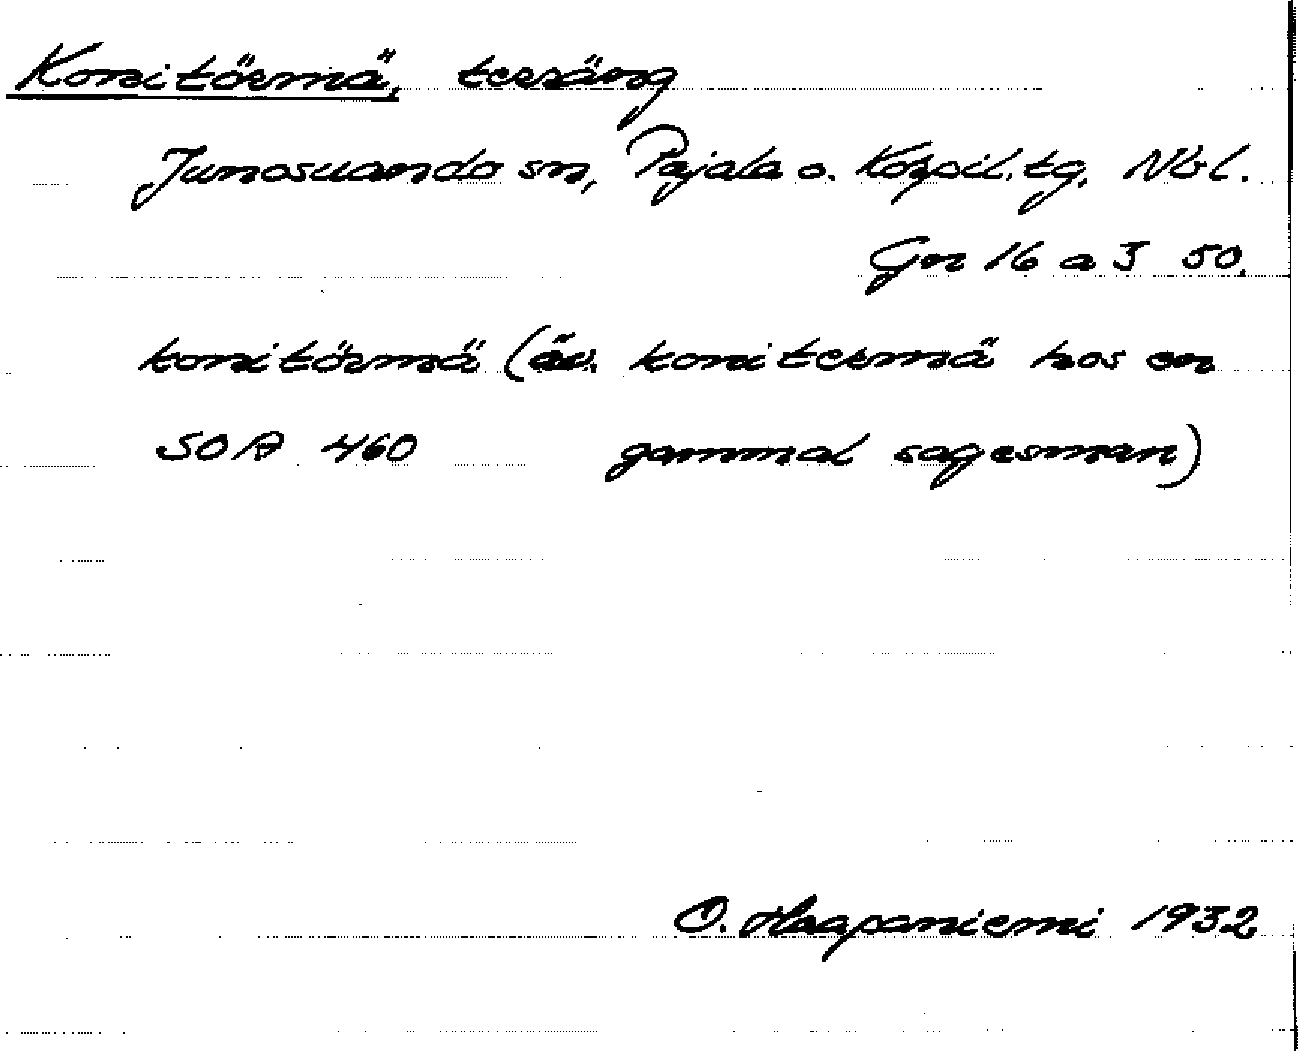 Konitörmä, teräng
Junosuando sn, Pajala o. Korpil. tg. Nbl.
Gn 16 a 3 50.
konitörmä (äv. konitermä hos en
SOA 460 gammal sagesman)
O. Haapaniemi 1932